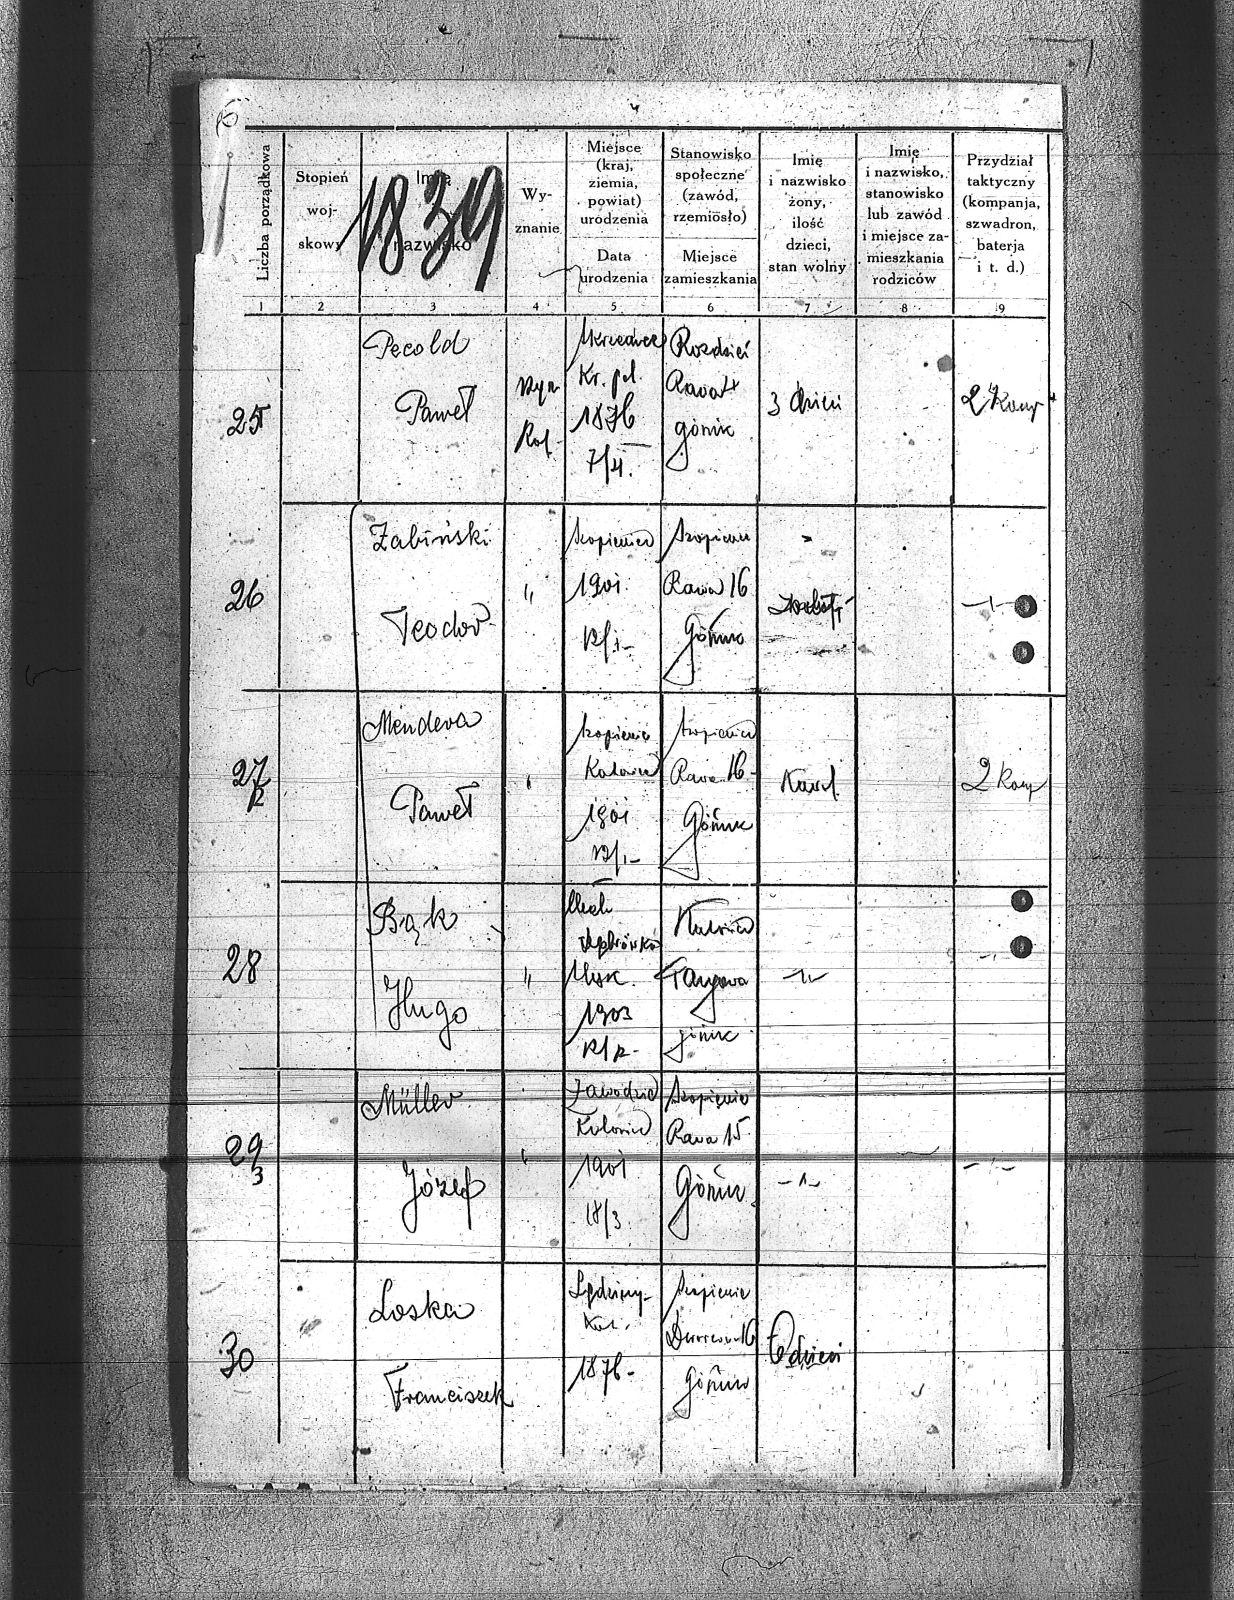 Liczba porządkowa
Stopień
woj-
skowy
Imię
nazwisko
1839
Wy-
znanie
Miejsce
(kraj,
ziemia,
powiat)
urodzenia
Data
urodzenia
Stanowisko
społeczne
(zawód,
rzemiosło)
Miejsce
zamieszkania
Imię
i nazwisko
żony,
ilość
dzieci,
stan wolny
Imię
i nazwisko,
stanowisko
lub zawód
i miejsce za-
mieszkania
rodziców
Przydział
taktyczny
(kompanja,
szwadron,
baterja
i t. d.)
1 2 3 4 5 6 7 8 9
25
Pecold
Paweł
Rzym
Kat.
Kr. pl.
1876
Rozdzień
Rava 4
górnik
3 dzieci
2 Komp
26
Żabiński
Teodor
"
Szopienice
1901
12/1
Szopienice
Rawa 16
Górnik
27
Mendera
Paweł
"
Szopienice
Katowice
1901
12/1
Szopienice
Rawa 16
Górnik
Kawal
2 Komp
28
Bąk
Hugo
"
1903
12/12
Katowice
Targowa
górnik
29
3
Müller
Józef
"
Zawodzie
Katowice
1901
18/3
Szopienice
Rawa 15
Górnik
30
Loska
Franciszek
Lędziny
1876
Szopienice
Dworcowa 16
Górnik
6 dzieci